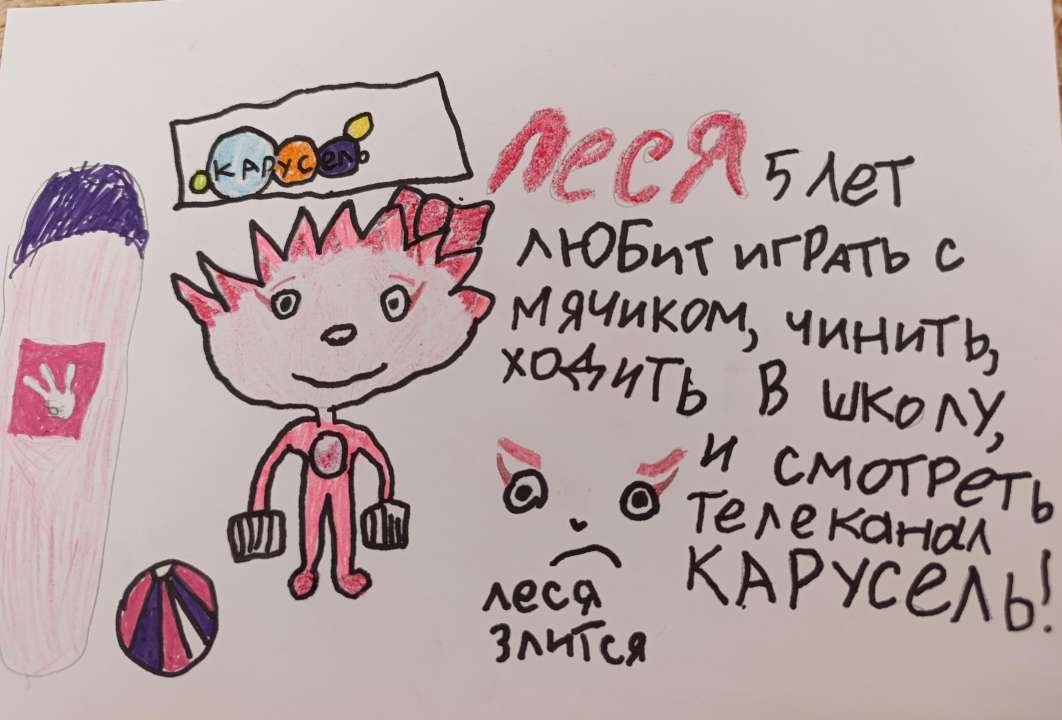 КАРУСЕЛЬ
ЛЕСЯ 5 ЛЕТ
ЛЮБИТ ИГРАТЬ С
МЯЧИКОМ, ЧИНИТЬ,
ХОДИТЬ В ШКОЛУ,
И СМОТРЕТЬ
ТЕЛЕКАНАЛ
КАРУСЕЛЬ!
ЛЕСЯ
ЗЛИТСЯ